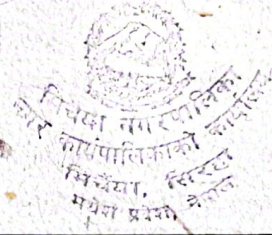 मिर्चैया नगरपालिका
नगर कार्यपालिकाको कार्यालय
मिर्चैया, सिरहा
मधेश प्रदेश नेपाल